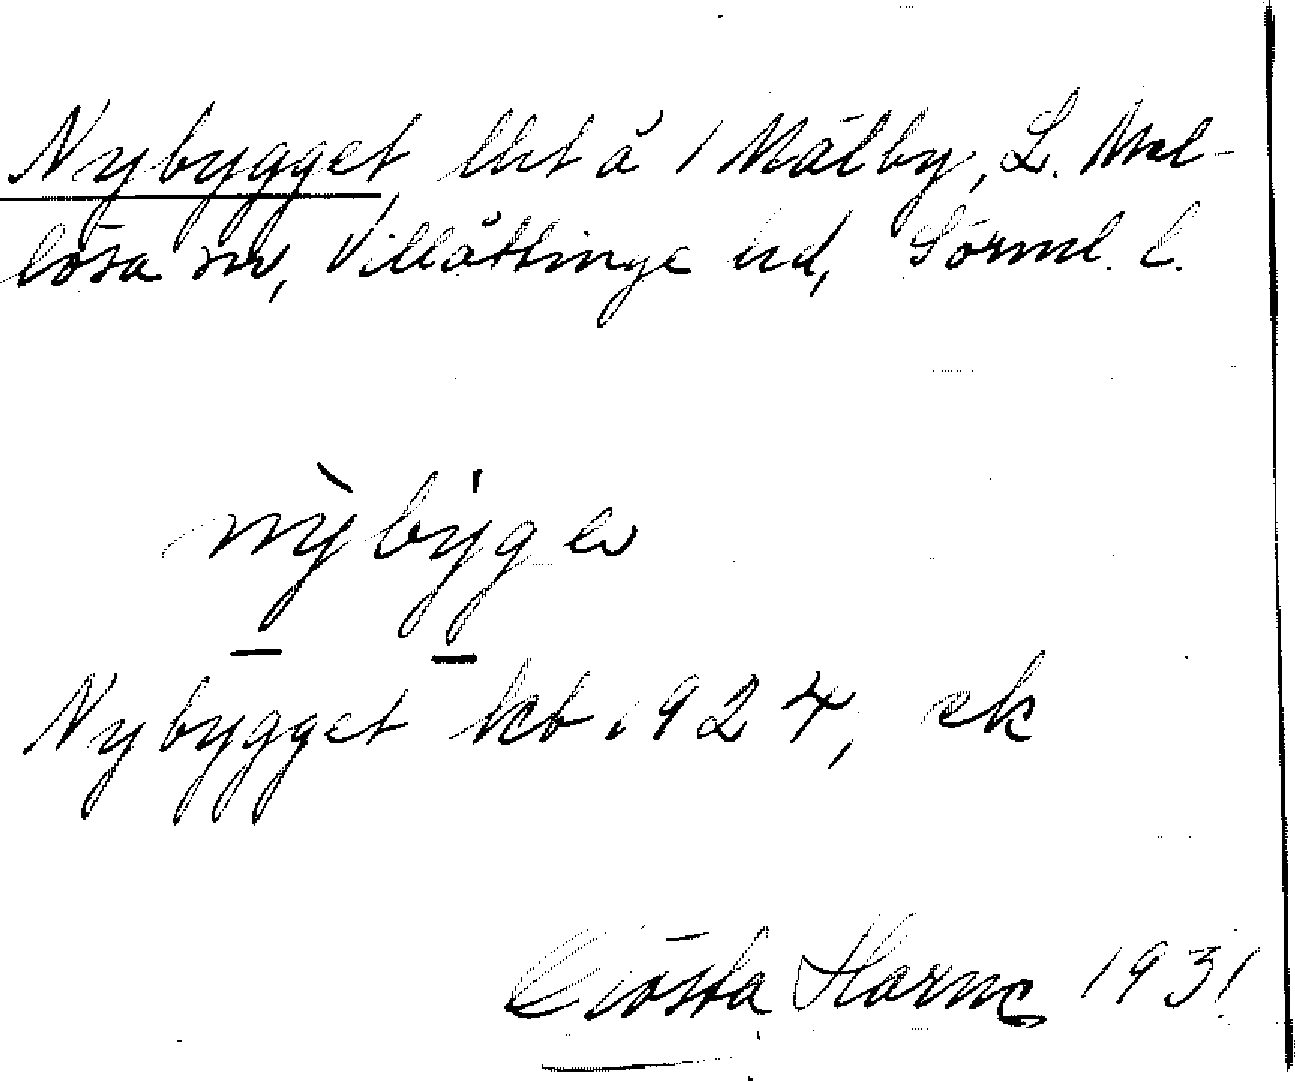 Nybygget, lht å 1 Mälby, L. Mel-
lösa sn, Villåttinge hd, Sörml. l.
nỳby̍gə
Nybygget kb 1924, ek
Gösta Horne 1931